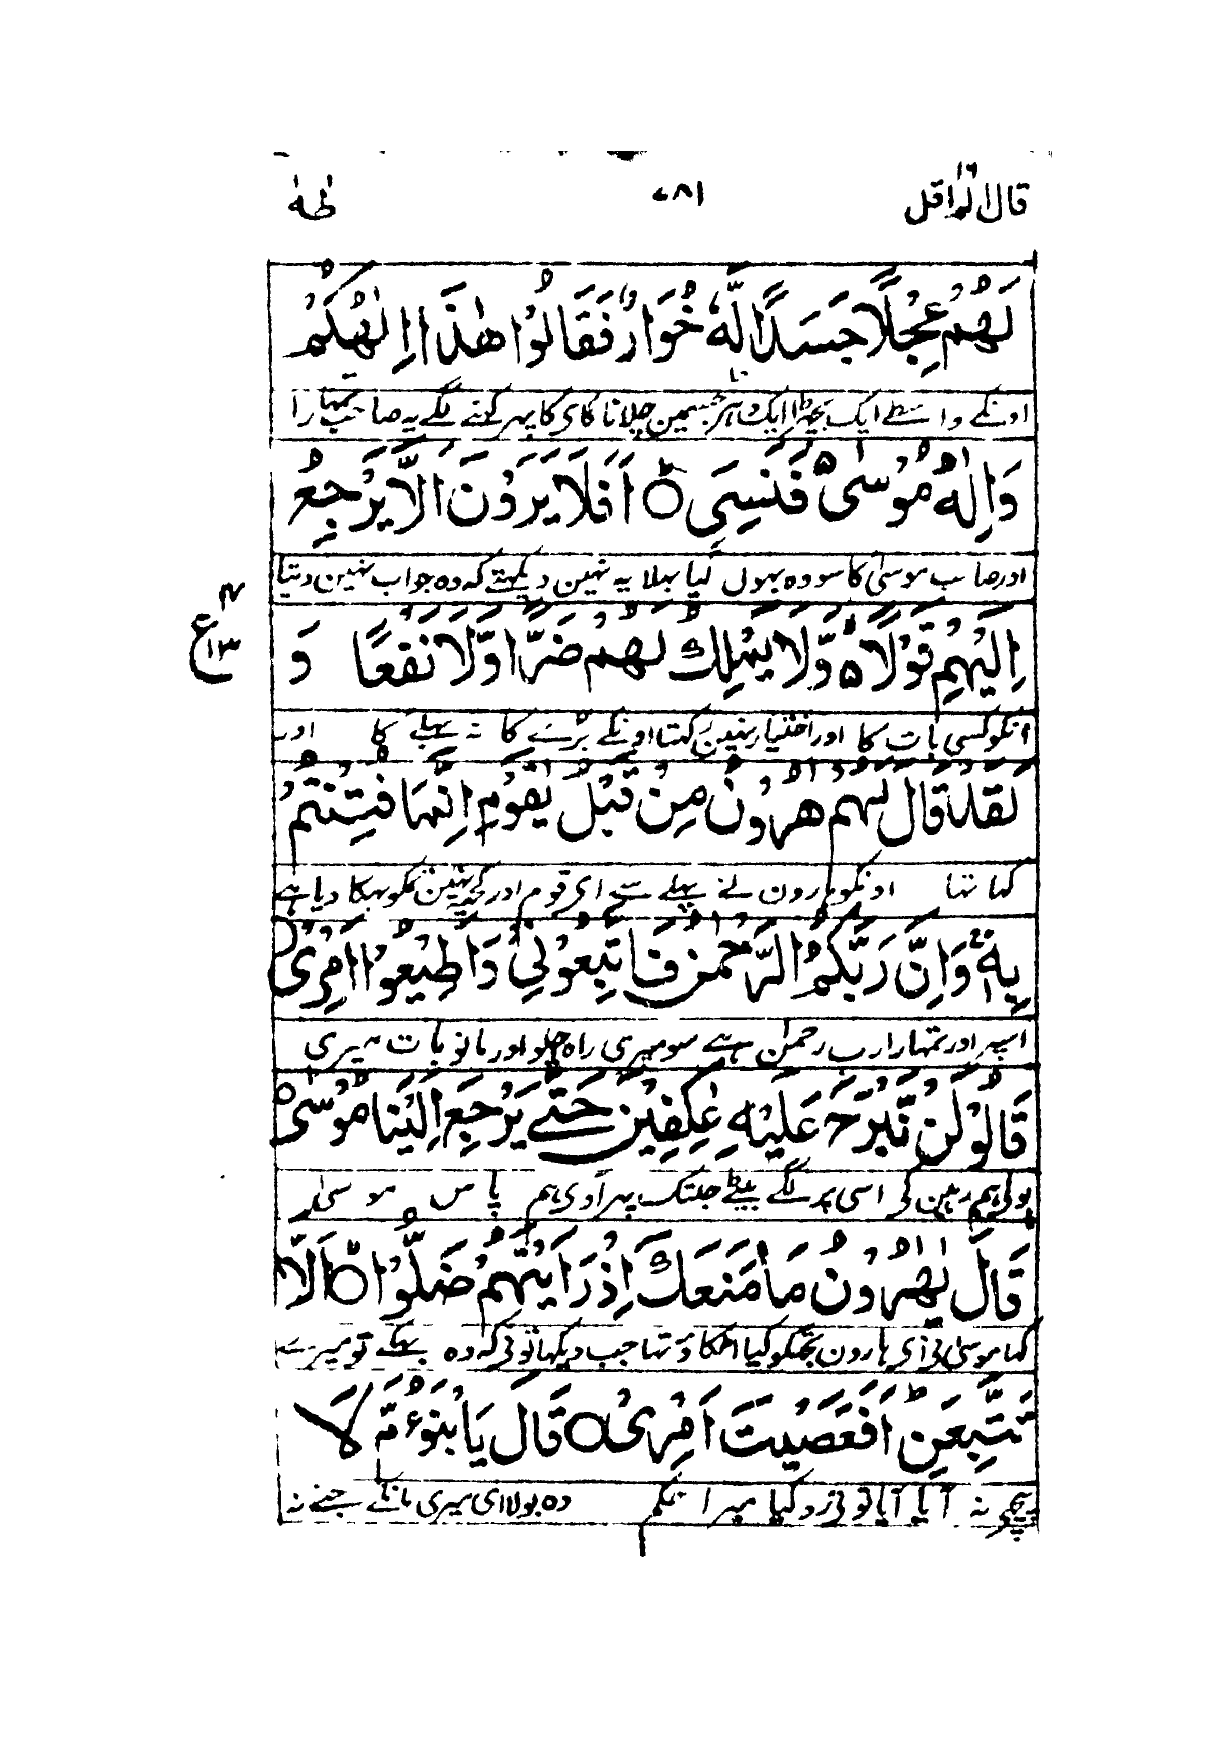 قال الم اقل ١٦
٧٨١
طٰهٰ
لَهُمْ عِجْلًا جَسَدًا لَّهٗ خُوَارٌ فَقَالُوْا هٰذَا اِلٰهُكُمْ
اونکے واسطے ایک بچھڑا ایک دہڑ جسمین چلانا گای کا پہر کہنے لگے یہ صاحب تمہارا
وَاِلٰهُ مُوْسٰى فَنَسِیَ اَفَلَا یَرَوْنَ اَلَّا یَرْجِعُ
اور صاحب موسیٰ کا سو وہ بہول گیا بہلا یہ نہین دیکہتے کہ وہ جواب نہین دیتا
اِلَیْهِمْ قَوْلًا وَّلَا یَمْلِكُ لَهُمْ ضَرًّا وَّلَا نَفْعًا وَ
ع ١٣
انکو کسی بات کا اور اختیار نہین رکہتا اونکے بڑے کا نہ بہلے کا اور
لَقَدْ قَالَ لَهُمْ هٰرُوْنُ مِنْ قَبْلُ یٰقَوْمِ اِنَّمَا فُتِنْتُمْ
کہا تہا اونکو ہارون نے پہلے سے ای قوم اور کچہہ نہین تمکو بہکا دیا ہے
بِهٖ وَاِنَّ رَبَّكُمُ الرَّحْمٰنُ فَاتَّبِعُوْنِیْ وَاَطِیْعُوْا اَمْرِیْ
اسپر اور تمہارا رب رحمٰن ہے سو میری راہ چلو اور مانو بات میری
قَالُوْا لَنْ نَّبْرَحَ عَلَیْهِ عٰكِفِیْنَ حَتّٰے یَرْجِعَ اِلَیْنَا مُوْسٰى
بولی ہم رہین گی اسی پر لگے بیٹے جبتک پہر آوی ہم پاس موسیٰ
قَالَ یٰهٰرُوْنُ مَا مَنَعَكَ اِذْ رَاَیْتَهُمْ ضَلُّوْا اَلَّا
کہا موسیٰ نی ای ہارون تجھکو کیا اٹکاؤ تہا جب دیکہا تونی کہ وہ بہکے تو میرے
تَتَّبِعَنِ اَفَعَصَیْتَ اَمْرِیْ قَالَ یَا بْنَؤُمَّ لَا
پیچھی نہ آیا آیا تونی رد کیا میرا حکم وہ بولا ای میری مانکے جنے نہ